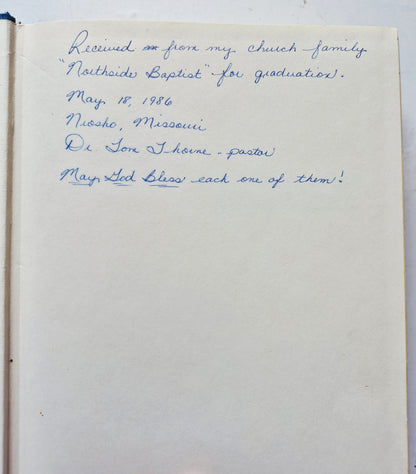 Received from my church family
"Northside Baptist" for graduation.
May 18, 1986
Neosho, Missouri
Dr. Tom Thorne - pastor
May God Bless each one of them!